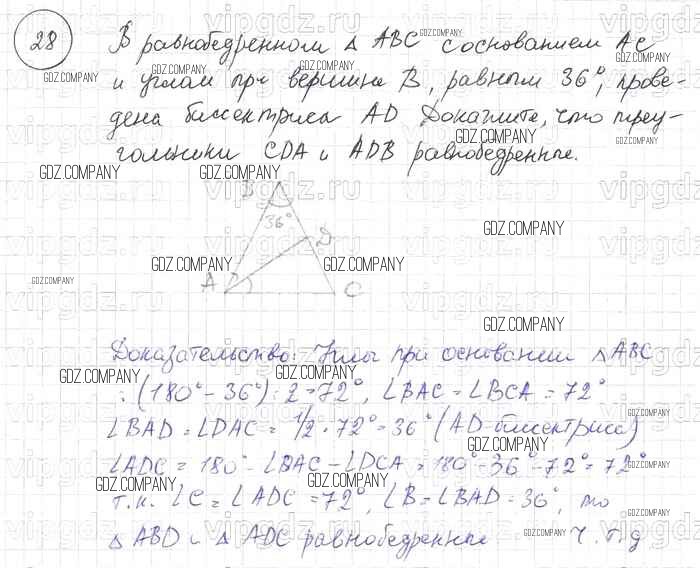 28
В равнобедренном △ ABC с основанием AC
и углом при вершине B, равным 36°, прове-
дена биссектриса AD Докажите, что треу-
гольники CDA и ADB равнобедренные.
B
36°
D
A
C
Доказательство: Углы при основании △ABC
: (180° - 36°) : 2 = 72°, ∠BAC = ∠BCA = 72°
∠BAD = ∠DAC = 1/2 · 72° = 36° (AD-биссектриса)
∠ADC = 180° - ∠BAC - ∠DCA = 180° - 36° - 72° = 72°
т.к. ∠C = ∠ADC = 72°, ∠B = ∠BAD = 36°, то
△ ABD и △ ADC равнобедренные ч.т.д
GDZ.COMPANY
vipgdz.ru